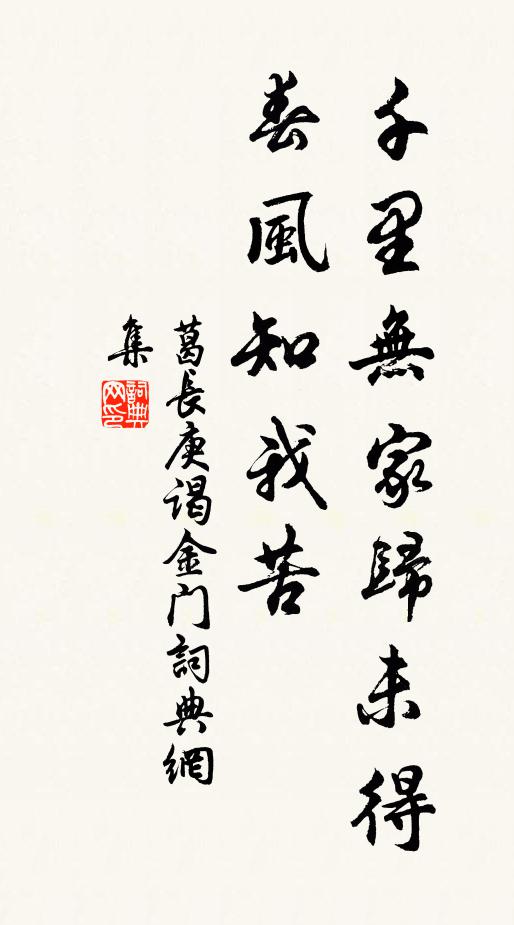 千里無家歸未得
春風知我苦
葛長庚謁金门詞典網
集
詞典
网印